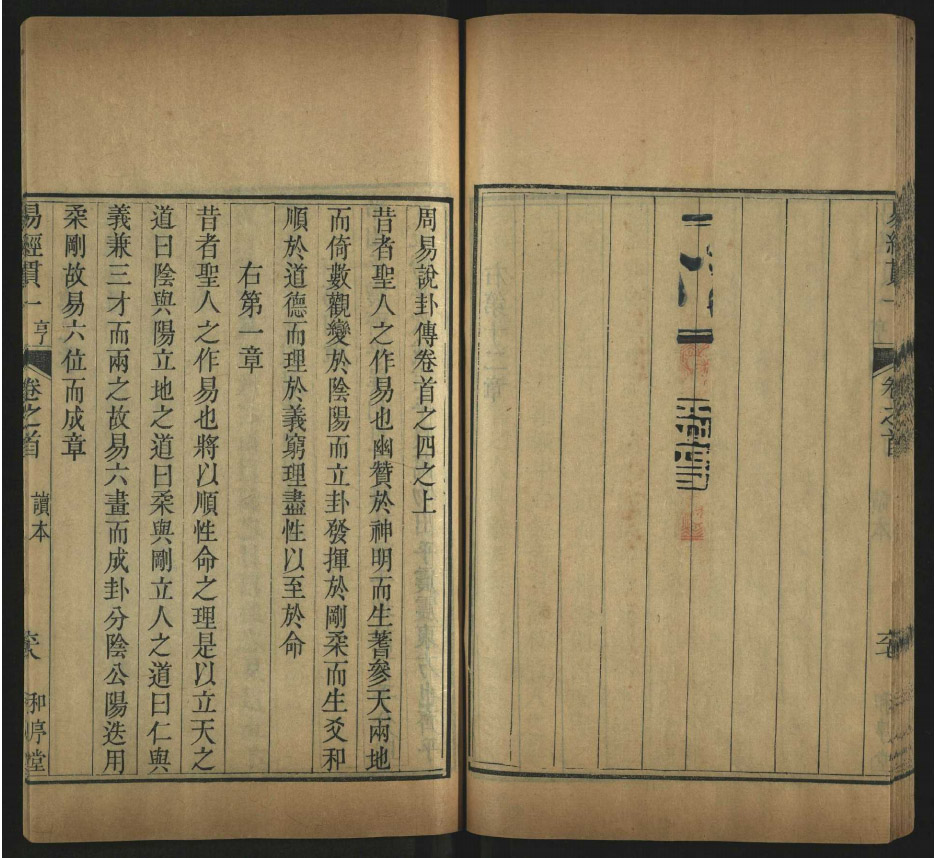 周易說卦傳卷首之四之上
昔者聖人之作易也幽贊於神明而生蓍參天兩地
而倚數觀變於陰陽而立卦發揮於剛柔而生爻和
順於道德而理於義窮理盡性以至於命
右第一章
昔者聖人之作易也將以順性命之理是以立天之
道曰陰與陽立地之道曰柔與剛立人之道曰仁與
義兼三才而兩之故易六畫而成卦分陰公陽迭用
柔剛故易六位而成章
易經貫一 亨 卷之首 讀本 和序堂